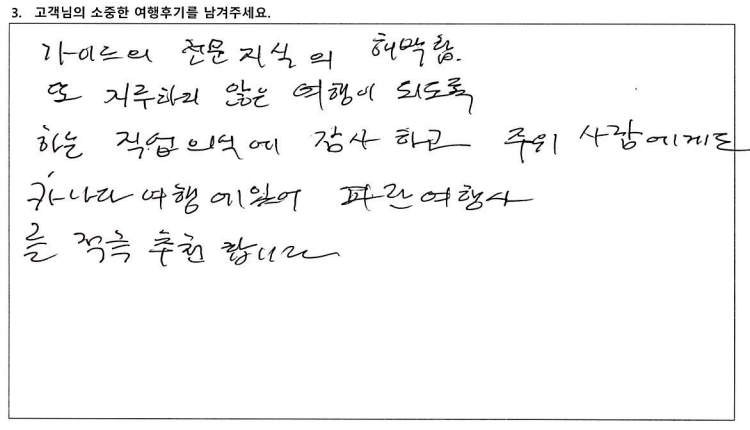 3. 고객님의 소중한 여행후기를 남겨주세요.
가이드의 전문지식의 해박함.
또 지루하지 않은 여행이 되도록
하는 직업의식에 감사하고 주위 사람에게도
캐나다 여행에있어 파란여행사
를 적극 추천 합니다